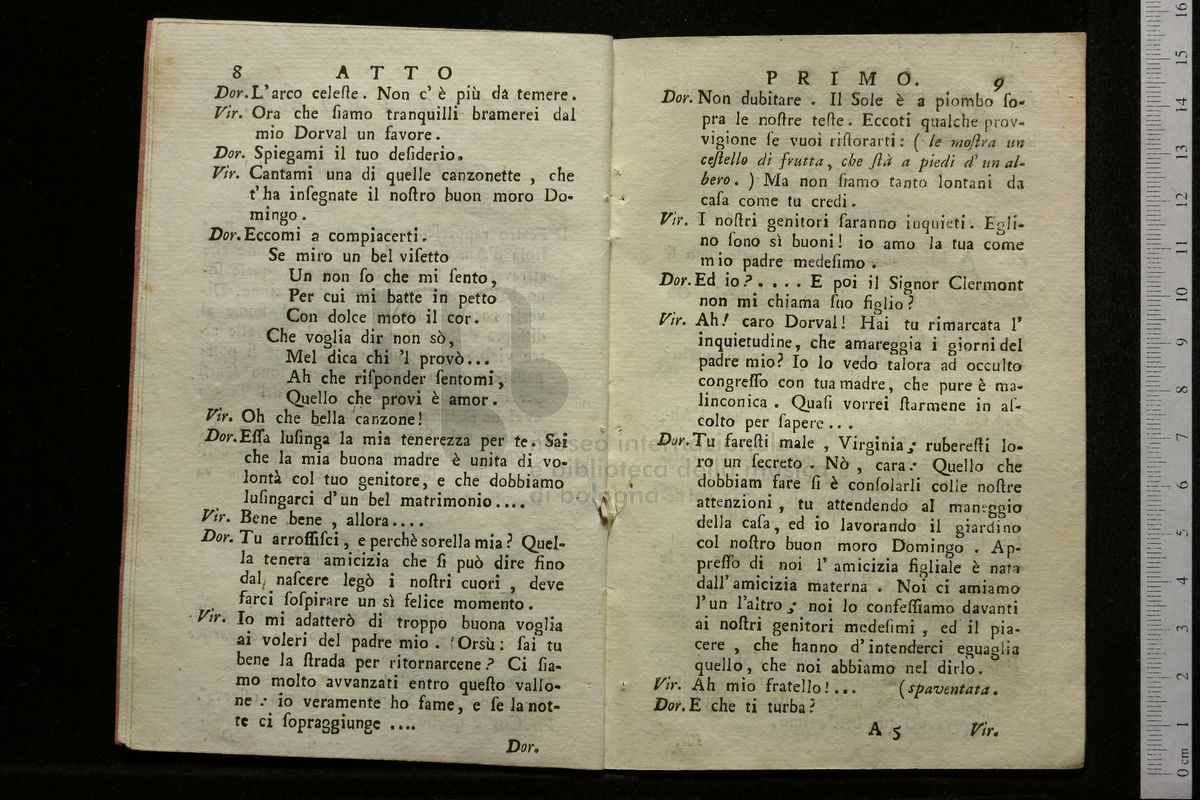 8 ATTO
Dor. L'arco celeſte. Non c'è più da temere.
Vir. Ora che ſiamo tranquilli bramerei dal
mio Dorval un favore.
Dor. Spiegami il tuo deſiderio.
Vir. Cantami una di quelle canzonette, che
t'ha inſegnate il noſtro buon moro Do-
mingo.
Dor. Eccomi a compiacerti.
Se miro un bel viſetto
Un non ſo che mi ſento,
Per cui mi batte in petto
Con dolce moto il cor.
Che voglia dir non sò,
Mel dica chi 'l provò...
Ah che riſponder ſentomi,
Quello che provi è amor.
Vir. Oh che bella canzone!
Dor. Eſſa luſinga la mia tenerezza per te. Sai
che la mia buona madre è unita di vo-
lontà col tuo genitore, e che dobbiamo
luſingarci d'un bel matrimonio....
Vir. Bene bene, allora....
Dor. Tu arroſſiſci, e perchè sorella mia? Quel-
la tenera amicizia che ſi può dire ſino
dal naſcere legò i noſtri cuori, deve
farci ſoſpirare un sì felice momento.
Vir. Io mi adatterò di troppo buona voglia
ai voleri del padre mio. Orsù: ſai tu
bene la ſtrada per ritornarcene? Ci ſia-
mo molto avvanzati entro queſto vallo-
ne: io veramente ho fame, e ſe la not-
te ci ſopraggiunge ....
Dor.
PRIMO. 9
Dor. Non dubitare. Il Sole è a piombo ſo-
pra le noſtre teſte. Eccoti qualche prov-
vigione ſe vuoi riſtorarti: (le moſtra un
ceſtello di frutta, che ſtà a piedi d'un al-
bero.) Ma non ſiamo tanto lontani da
caſa come tu credi.
Vir. I noſtri genitori ſaranno inquieti. Egli-
no ſono sì buoni! io amo la tua come
mio padre medeſimo.
Dor. Ed io?.... E poi il Signor Clermont
non mi chiama ſuo figlio?
Vir. Ah! caro Dorval! Hai tu rimarcata l'
inquietudine, che amareggia i giorni del
padre mio? Io lo vedo talora ad occulto
congreſſo con tua madre, che pure è ma-
linconica. Quaſi vorrei ſtarmene in aſ-
colto per ſapere...
Dor. Tu fareſti male, Virginia; rubereſti lo-
ro un ſecreto. Nò, cara: Quello che
dobbiam fare ſi è conſolarli colle noſtre
attenzioni, tu attendendo al maneggio
della caſa, ed io lavorando il giardino
col noſtro buon moro Domingo. Ap-
preſſo di noi l'amicizia figliale è nata
dall'amicizia materna. Noi ci amiamo
l'un l'altro; noi lo confeſſiamo davanti
ai noſtri genitori medeſimi, ed il pia-
cere, che hanno d'intenderci eguaglia
quello, che noi abbiamo nel dirlo.
Vir. Ah mio fratello!... (spaventata.
Dor. E che ti turba?
A 5 Vir.
museo internazionale
e biblioteca della musica
di bologna
0 cm 1 2 3 4 5 6 7 8 9 10 11 12 13 14 15 16